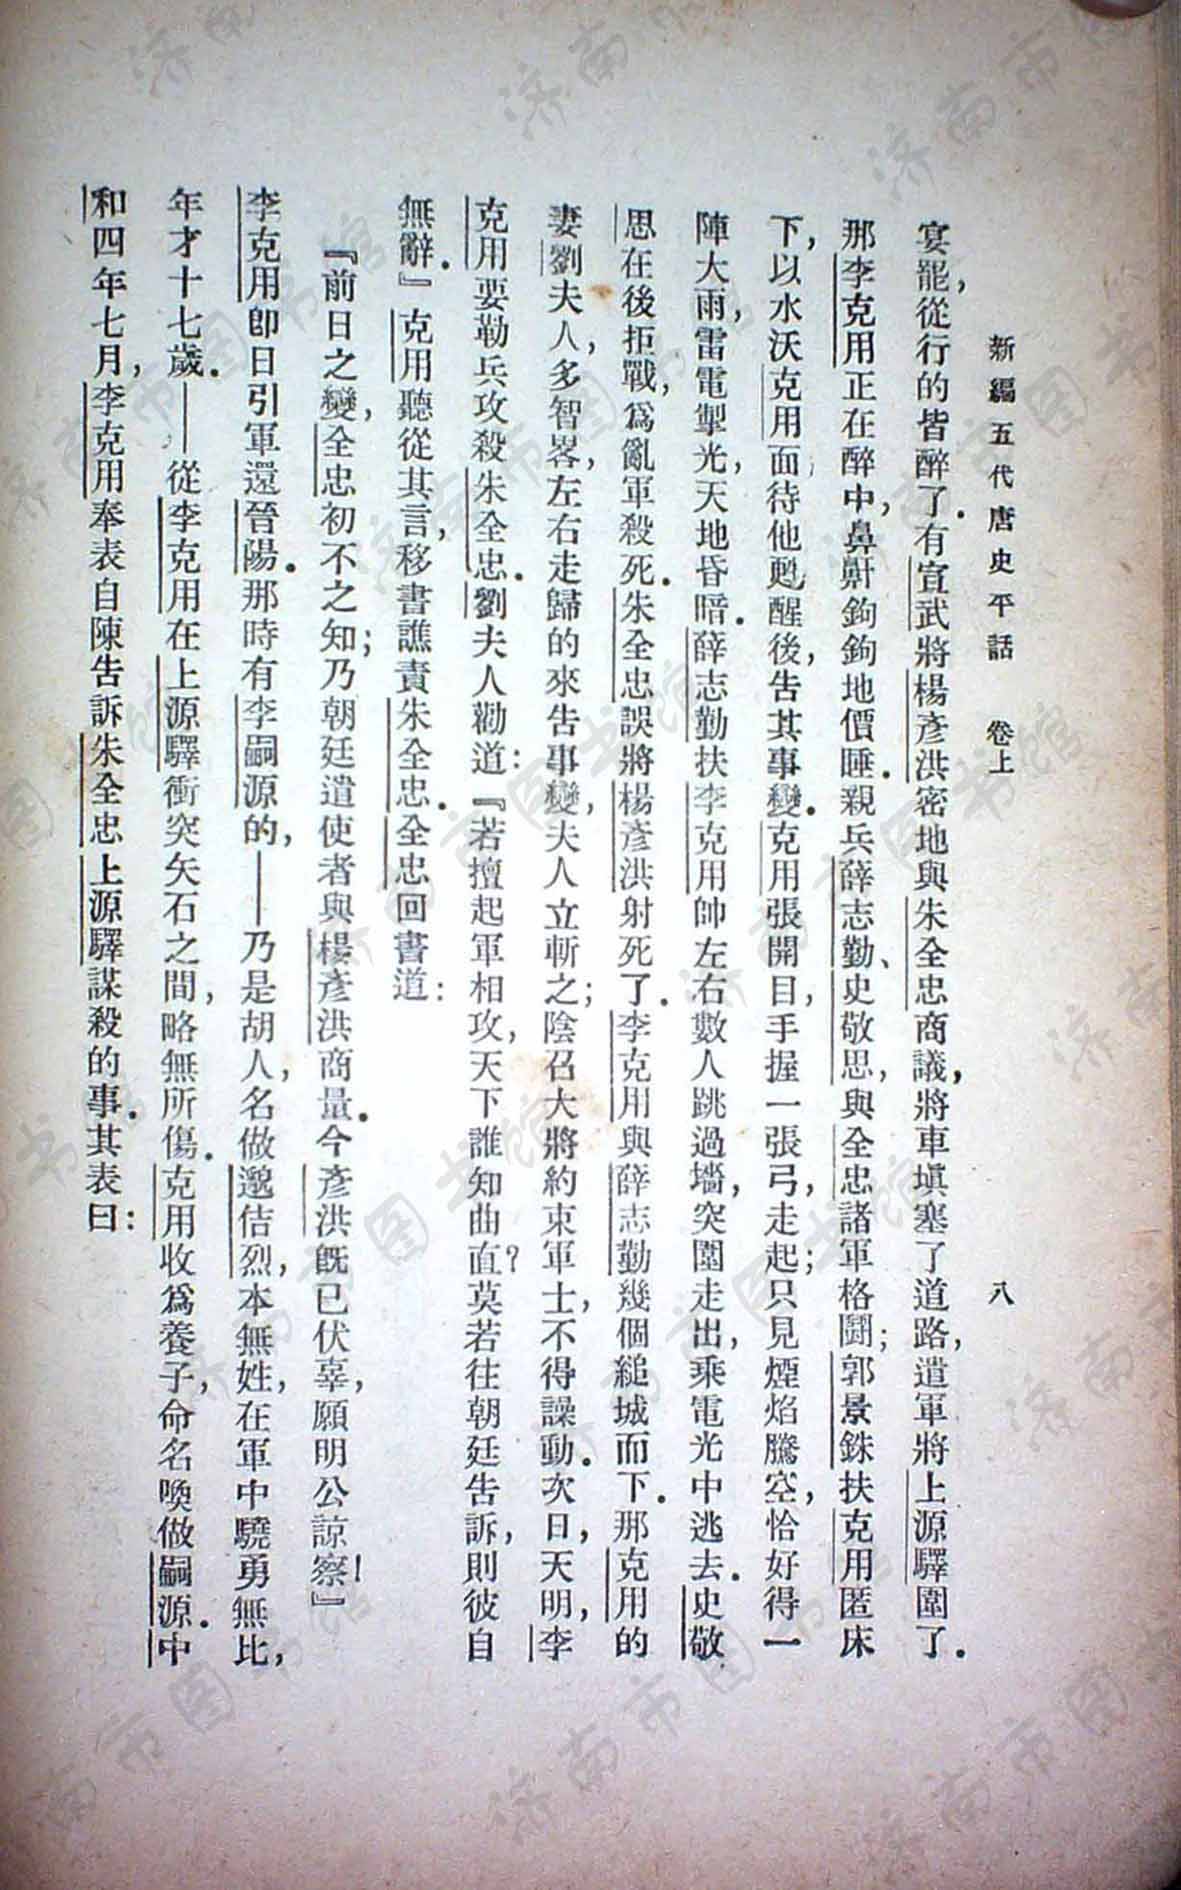 新編五代唐史平話　卷上　八
宴罷，從行的皆醉了．有宣武將楊彥洪密地與朱全忠商議，將車塡塞了道路，遣軍將上源驛圍了．
那李克用正在醉中，鼻鼾鉤鉤地價睡．親兵薛志勤、史敬思，與全忠諸軍格鬪；郭景銖扶克用匿床
下，以水沃克用面；待他甦醒後，告其事變．克用張開目，手握一張弓，走起；只見煙焰騰空，恰好得一
陣大雨，雷電掣光，天地昏暗．薛志勤扶李克用帥左右數人跳過墻，突圍走出，乘電光中逃去．史敬
思在後拒戰，爲亂軍殺死．朱全忠誤將楊彥洪射死了．李克用與薛志勤幾個縋城而下．那克用的
妻劉夫人，多智畧，左右走歸的來告事變，夫人立斬之；陰召大將約束軍士，不得譟動．次日，天明，李
克用要勒兵攻殺朱全忠．劉夫人勸道：『若擅起軍相攻，天下誰知曲直？莫若往朝廷告訴，則彼自
無辭．』克用聽從其言，移書譙責朱全忠．全忠回書道：
『前日之變，全忠初不之知；乃朝廷遣使者與楊彥洪商量．今彥洪旣已伏辜，願明公諒察！』
李克用卽日引軍還晉陽．那時有李嗣源的，——乃是胡人，名做邈佶烈，本無姓，在軍中驍勇無比，
年才十七歲．——從李克用在上源驛衝突矢石之間，略無所傷．克用收爲養子，命名喚做嗣源．中
和四年七月，李克用奉表自陳告訴朱全忠上源驛謀殺的事．其表曰：
济南市图书馆